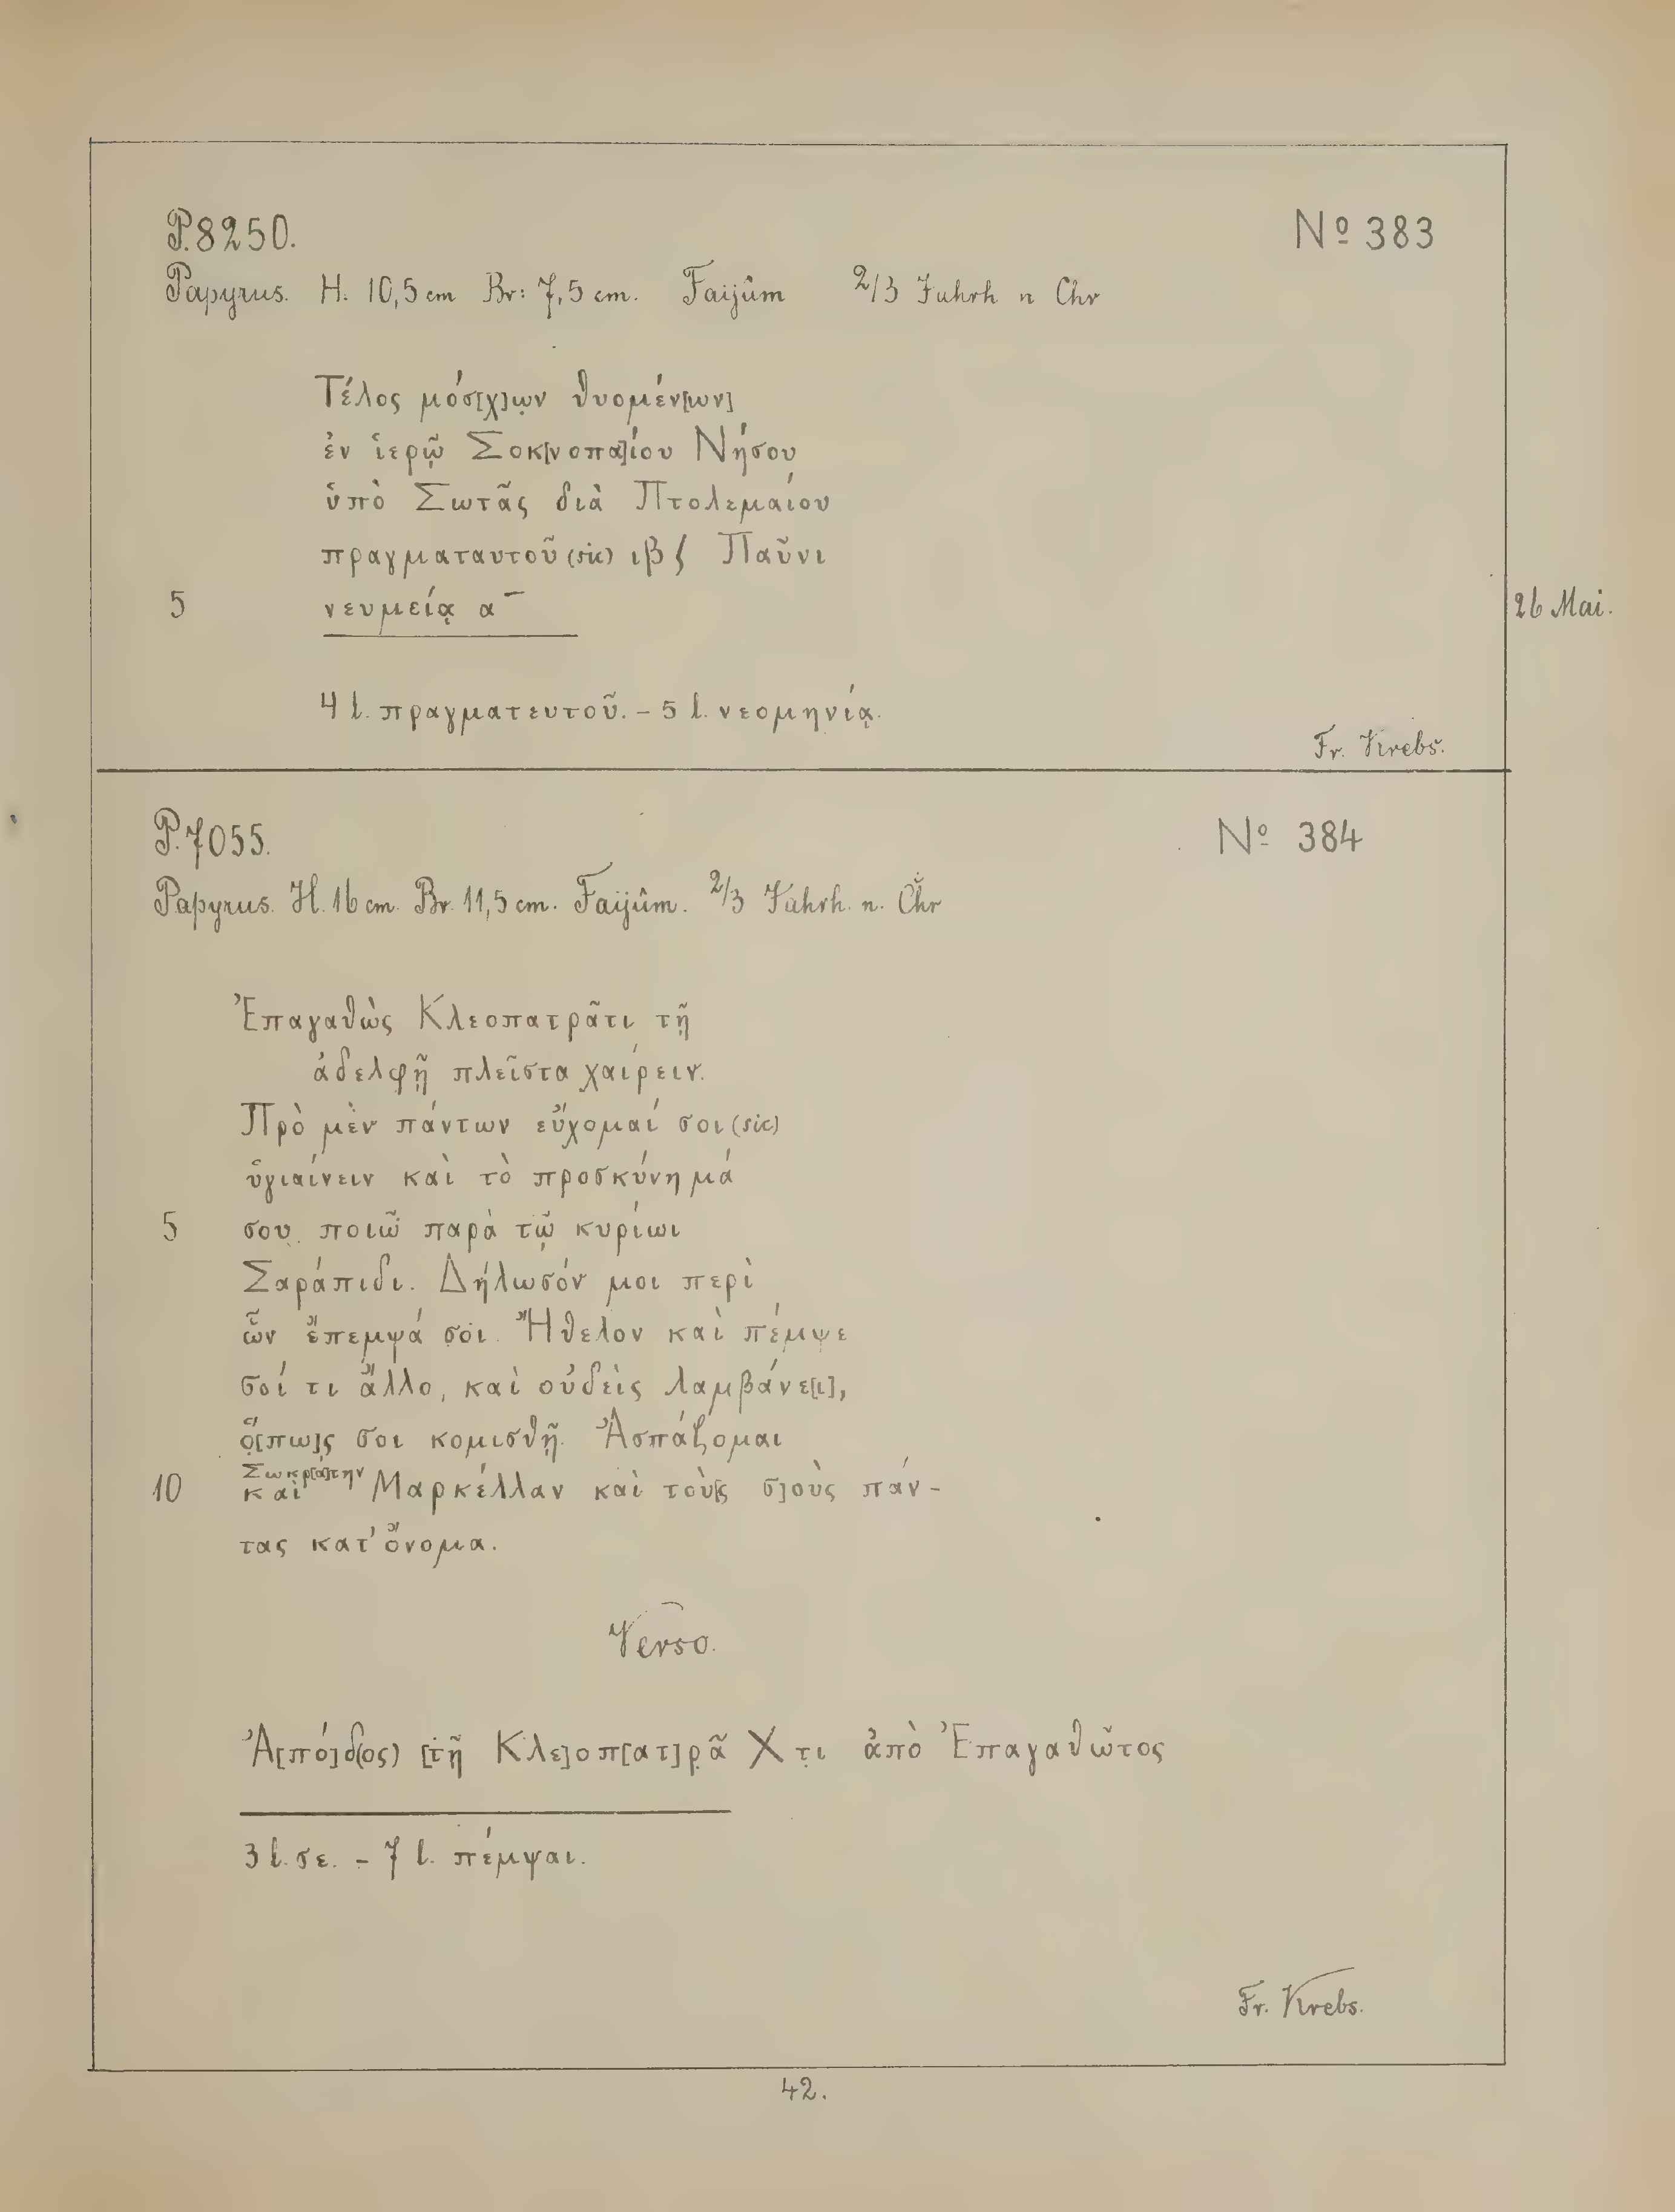 P. 8250. Nº 383
Papyrus. H. 10,5 cm Br: 7,5 cm. Faijûm 2/3 Jahrh n Chr
Τέλος μόσ[χ]ω̣ν θυομέν[ων]
ἐν ἱερῷ Σοκ[νοπα]ίου Νήσου
ὑπὸ Σωτᾶς διὰ Πτολεμαίου
πραγματαυτοῦ (sic) ιβ ʃ Παῦνι
5 νευμείᾳ α¯ 26 Mai.
4 l. πραγματευτοῦ. – 5 l. νεομηνίᾳ.
Fr. Krebs.
P. 7055. Nº 384
Papyrus. H. 16 cm. Br. 11,5 cm. Faijûm. 2/3 Jahrh. n. Chr
Ἐπαγαθὼς Κλεοπατρᾶτι τῇ
ἀδελφῇ πλεῖστα χαίρειν.
Πρὸ μὲν πάντων εὔχομαί σοι (sic)
ὑγιαίνειν καὶ τὸ προσκύνημά
5 σου ποιῶ παρὰ τῷ κυρίωι
Σαράπιδι. Δήλωσόν μοι περὶ
ὧν ἔπεμψά σοι. Ἤθελον καὶ πέμψε
σοί τι ἄλλο, καὶ οὐδεὶς λαμβάνε[ι],
ὅ̣[πω]ς σοι κομισθῇ. Ἀσπάζομαι
Σωκρ[ά]την
10 καὶ Μαρκέλλαν καὶ τοὺ[ς σ]οὺς πάν-
τας κατ' ὄνομα.
Verso.
Ἀ[πό]δ(ος) [τῇ Κλε]οπ[ατ]ρ̣ᾶ X τ̣ι ἀπὸ Ἐπαγαθῶτος
3 l. σε. – 7 l. πέμψαι.
Fr. Krebs.
42.